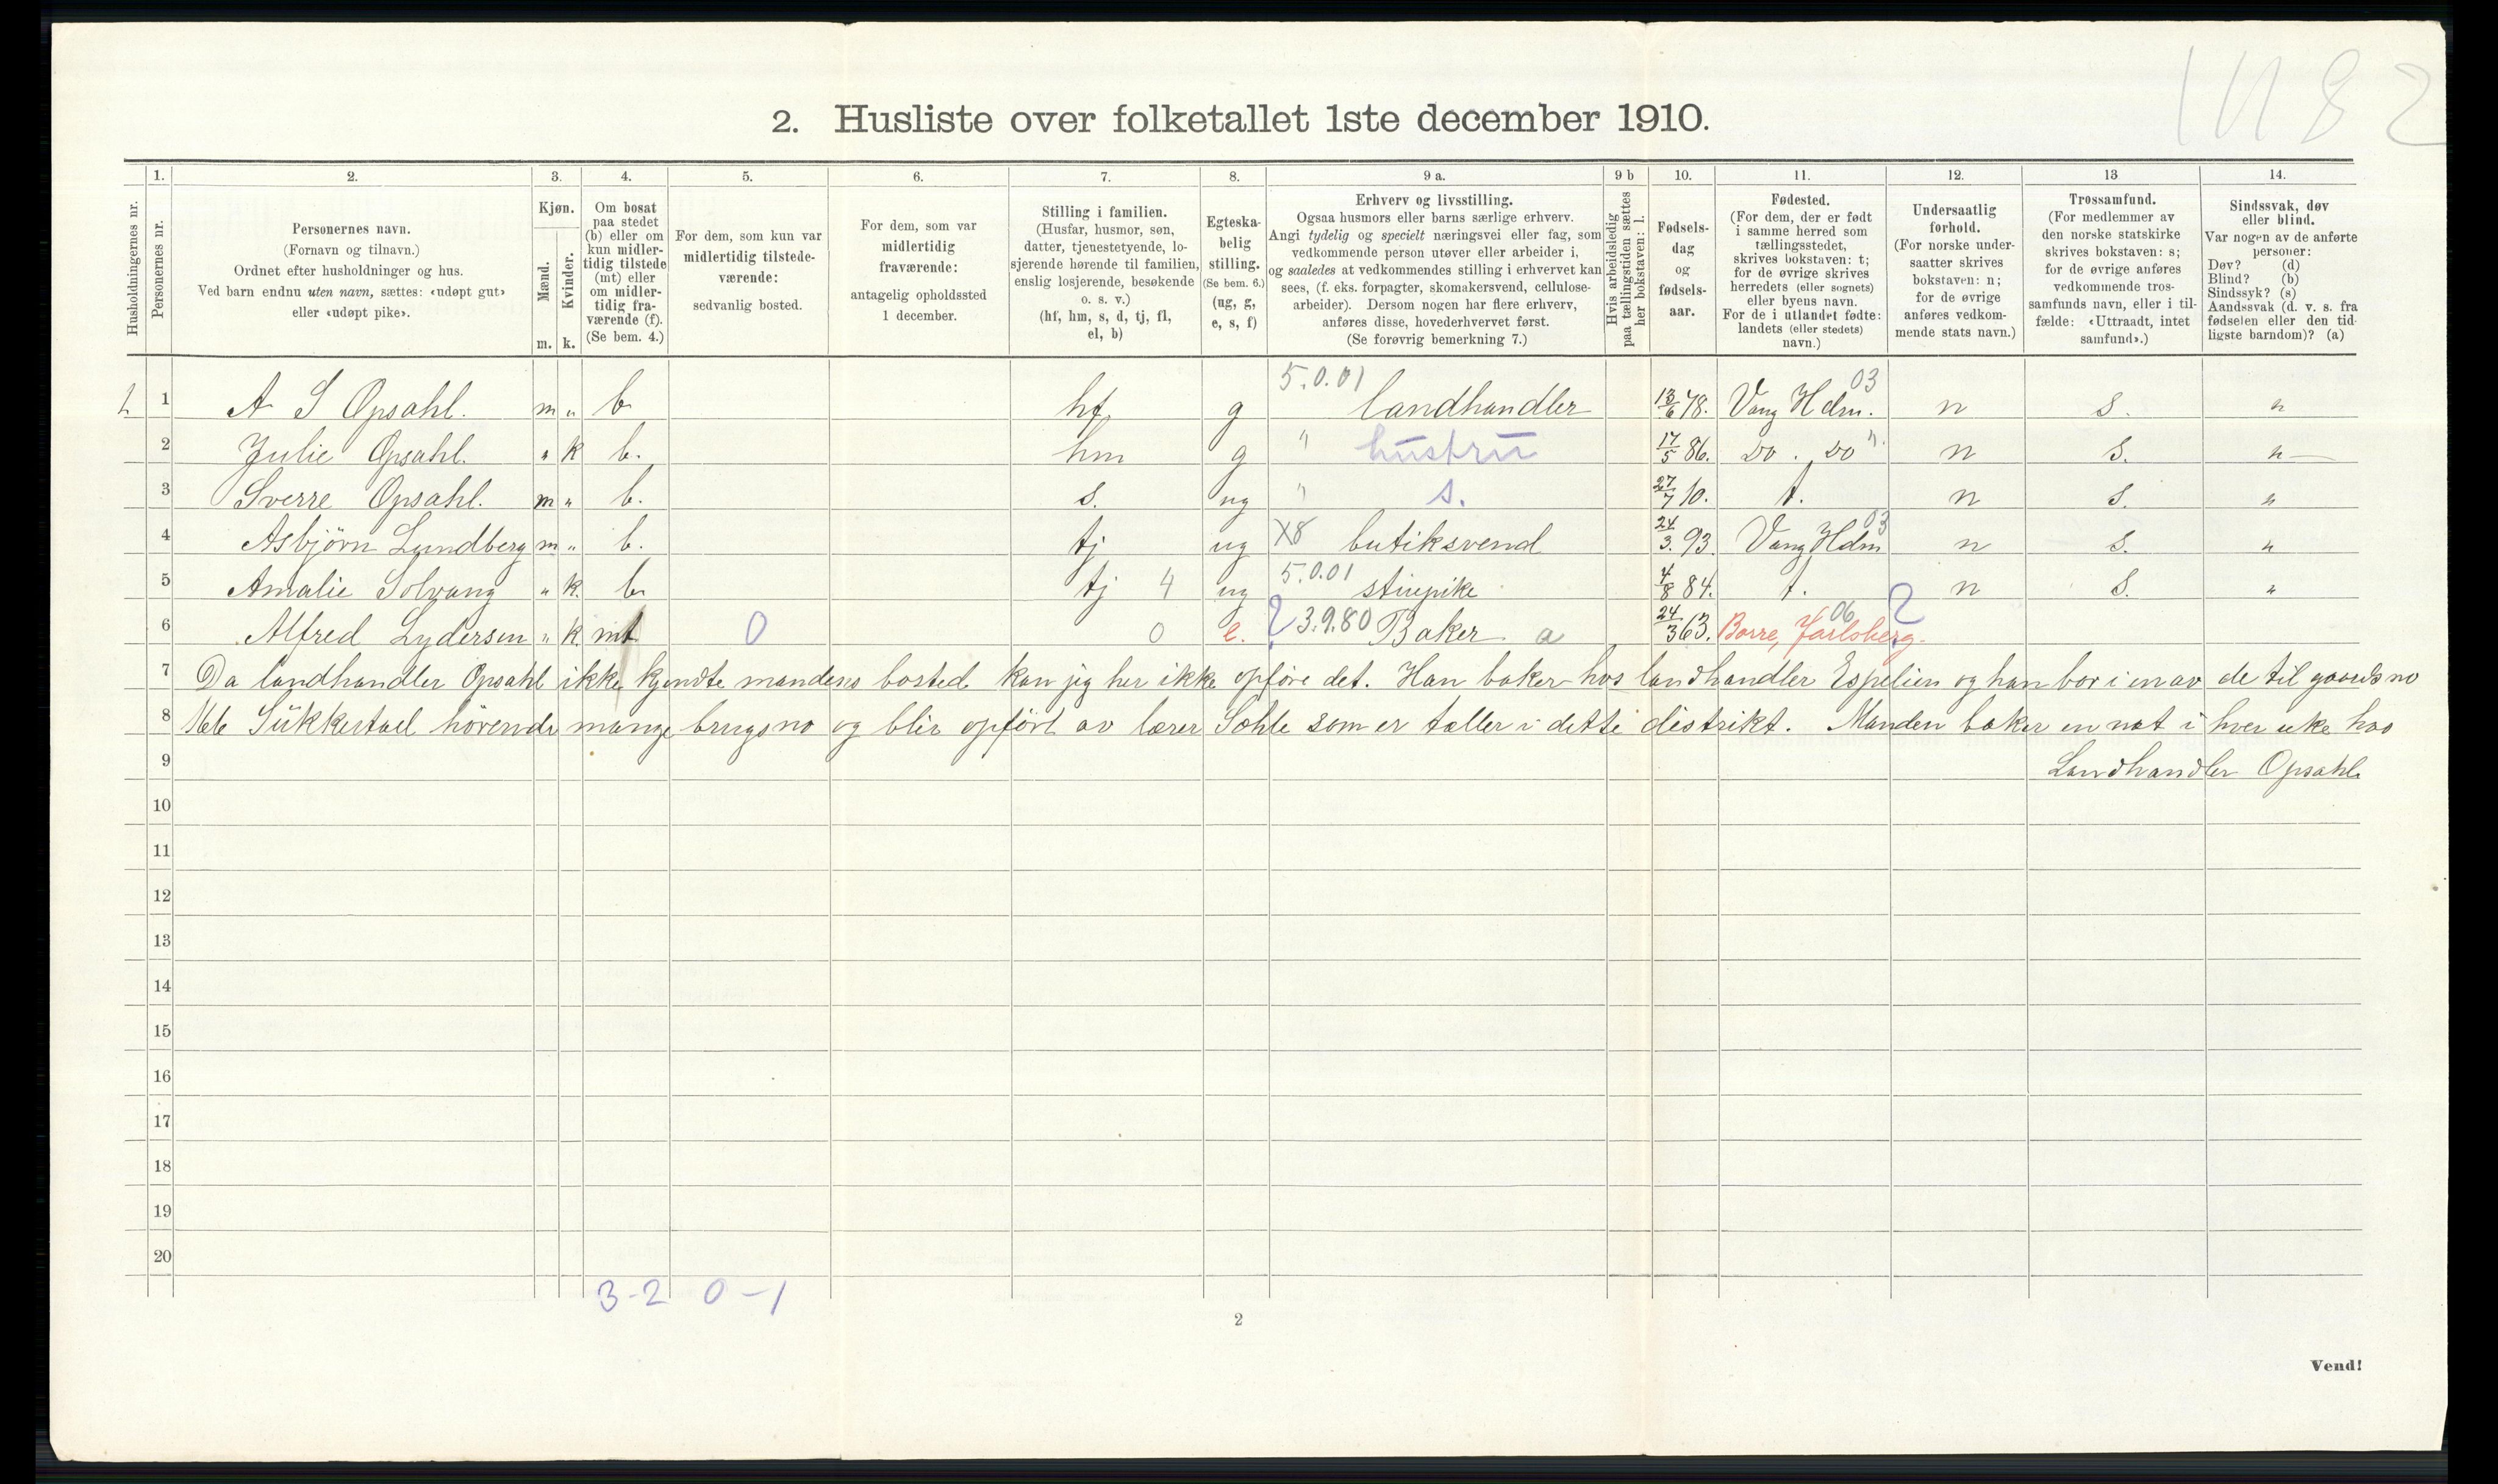 1182
2. Husliste over folketallet 1ste december 1910.
Husholdningernes nr.
1. Personernes nr.
2. Personernes navn. (Fornavn og tilnavn.) Ordnet efter husholdninger og hus. Ved barn endnu uten navn, sættes: «udøpt gut» eller «udøpt pike».
3. Kjøn. Mænd. m. Kvinder. k.
4. Om bosat paa stedet (b) eller om kun midlertidig tilstede (mt) eller om midlertidig fraværende (f). (Se bem. 4.)
5. For dem, som kun var midlertidig tilstedeværende: sedvanlig bosted.
6. For dem, som var midlertidig fraværende: antagelig opholdssted 1 december.
7. Stilling i familien. (Husfar, husmor, søn, datter, tjenestetyende, losjerende hørende til familien, enslig losjerende, besøkende o. s. v.) (hf, hm, s, d, tj, fl, el, b)
8. Egteskabelig stilling. (Se bem. 6.) (ug, g, e, s, f)
9 a. Erhverv og livsstilling. Ogsaa husmors eller barns særlige erhverv. Angi tydelig og specielt næringsvei eller fag, som vedkommende person utøver eller arbeider i, og saaledes at vedkommendes stilling i erhvervet kan sees, (f. eks. forpagter, skomakersvend, cellulosearbeider). Dersom nogen har flere erhverv, anføres disse, hovederhvervet først. (Se forøvrig bemerkning 7.)
9 b Hvis arbeidsledig paa tællingstiden sættes her bokstaven: l.
10. Fødselsdag og fødselsaar.
11. Fødested. (For dem, der er født i samme herred som tællingsstedet, skrives bokstaven: t; for de øvrige skrives herredets (eller sognets) eller byens navn. For de i utlandet fødte: landets (eller stedets) navn.)
12. Undersaatlig forhold. (For norske undersaatter skrives bokstaven: n; for de øvrige anføres vedkommende stats navn.)
13 Trossamfund. (For medlemmer av den norske statskirke skrives bokstaven: s; for de øvrige anføres vedkommende trossamfunds navn, eller i tilfælde: «Uttraadt, intet samfund».)
14. Sindssvak, døv eller blind. Var nogen av de anførte personer: Døv? (d) Blind? (b) Sindssyk? (s) Aandssvak (d. v. s. fra fødselen eller den tidligste barndom)? (a)
1 A S Opsahl. m " b hf. g 5.0.01 landhandler 13/6 78. Vang Hdm. 03 n s. "
2 Julie Opsahl. " k b. hm g " hustru 17/5 86. do. do " n s. "
3 Sverre Opsahl. m " b. s. ug " s. 27/7 10. t. n s. "
4 Asbjörn Lundberg m " b. tj ug X8 butiksvend 24/3 93 Vang Hdm 03 n s. "
5 Amalie Solvang " k. b. tj 4 ug 5.0.01 stuepike 4/8 84. t. n s. "
6 Alfred Lydersen " k. mt 0 0 e. ? 3.9.80 Baker a 24/3 63. Borre, Jarlsberg. 06 ?
7 Da landhandler Opsahl ikke kjendte mandens bosted kan jeg her ikke opföre det. Han baker hos landhandler Espelien og han bor i en av de til gaards no
8 Sükkestad hörende mange brugsno og blir opfört av lærer Sohle som er tæller i dette distrikt. Manden baker en nat i hver uke hos
9 Landhandler Opsahl.
10
11
12
13
14
15
16
17
18
19
20
3-2 0-1
2
Vend!